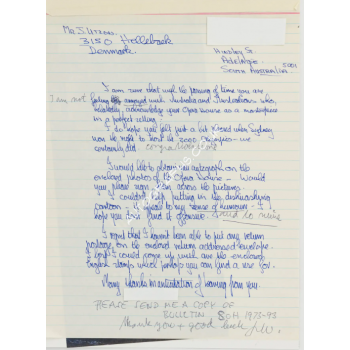 Mr J. Utzon
3150 Hellebaek
Denmark
Hinsley S.
Adelaide
South Australia 5001
I am sure that with the passing of time you are
I am not feeling annoyed with Australia and Australians who,
relatedly, acknowledge your Opera House as a masterpiece
in a perfect setting.
I do hope you felt just a bit proud when Sydney
won the right to host the 2000 Olympics - we
certainly did congratulations
I would like to obtain your autograph on the
enclosed photos of the Opera House - would
you please sign them across the pictures.
I couldn't help putting in the dishwashing
cartoon - it appeals to my sense of humour - I
hope you don't find it offensive. and to mine
I regret that I haven't been able to put any return
postage on the enclosed return addressed envelope.
The best I could come up with are the enclosed
English stamps which perhaps you can find a use for.
Many thanks in anticipation of hearing from you.
PLEASE SEND ME A COPY OF
BULLITIN 1973-93
Thank you + good luck